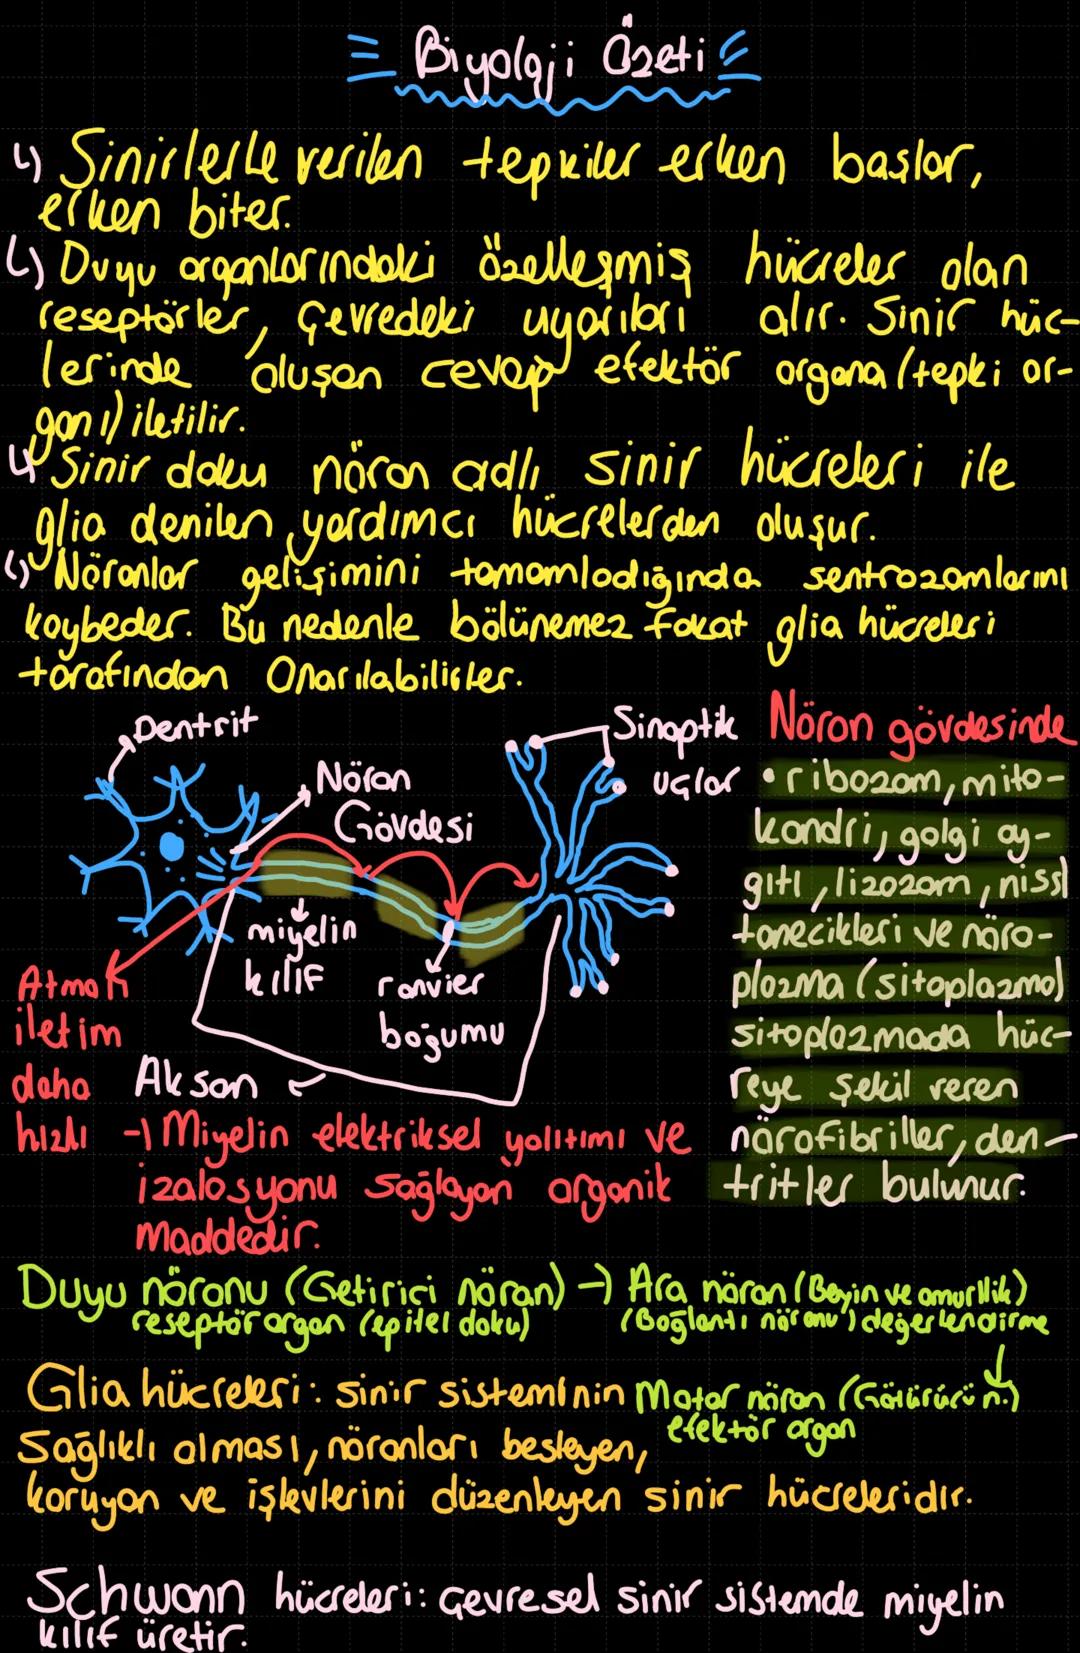 Biyoloji Özeti
↳ Sinirlerle verilen tepkiler erken başlar,
erken biter.
↳ Duyu organlarındaki özelleşmiş hücreler olan
reseptörler, çevredeki uyarıları alır. Sinir hüc-
lerinde oluşan cevap efektör organa (tepki or-
ganı) iletilir.
↳ Sinir doku nöron adlı sinir hücreleri ile
glia denilen yardımcı hücrelerden oluşur.
↳ Nöronlar gelişimini tamamladığında sentrozomlarını
kaybeder. Bu nedenle bölünemez fakat glia hücreleri
tarafından onarılabilirler.
Dentrit
Nöron
Gövdesi
Sinaptik
uçlar
miyelin
kılıf
ranvier
boğumu
Akson
Atmak
iletim
daha
hızlı
Nöron gövdesinde
• ribozom, mito-
kondri, golgi ay-
gıtı, lizozom, nissl
tanecikleri ve nöro-
plazma (sitoplazma)
sitoplazmada hüc-
reye şekil veren
nörofibriller, den-
tritler bulunur.
→ Miyelin elektriksel yalıtımı ve
izalosyonu sağlayan organik
maddedir.
Duyu nöronu (Getirici nöron) → Ara nöron (Beyin ve omurilik)
reseptör organ (epitel doku) (Bağlantı nöronu) değerlendirme
↓
Motor nöron (Götürücü n.)
efektör organ
Glia hücreleri: sinir sisteminin
sağlıklı olması, nöronları besleyen,
koruyan ve işlevlerini düzenleyen sinir hücreleridir.
Schwann hücreleri: çevresel sinir sistemde miyelin
kılıf üretir.